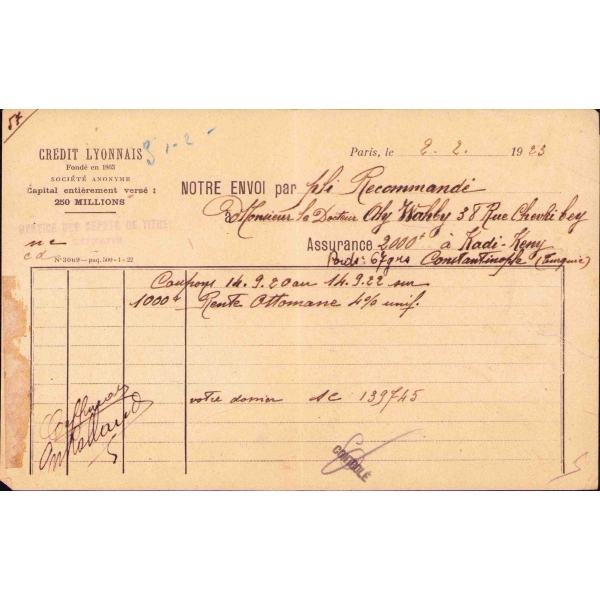 54
CRÉDIT LYONNAIS
Fondé en 1863
SOCIÉTÉ ANONYME
Capital entièrement versé :
250 MILLIONS
SERVICE DES DÉPÔTS DE TITRES
N° 3069 — paq. 500 - 1 - 22
Paris, le 2. 2. 1923
NOTRE ENVOI par pli Recommandé
à Monsieur le Docteur Aly Wahby 38 Rue Chevki bey
Assurance 2000f à Kadi-Keuy
Poids 67grs Constantinople (Turquie)
Coupons 14.9.20 au 14.9.22 sur
1000 Rente Ottomane 4% unif.
votre dossier SC 139745
CONTRÔLÉ